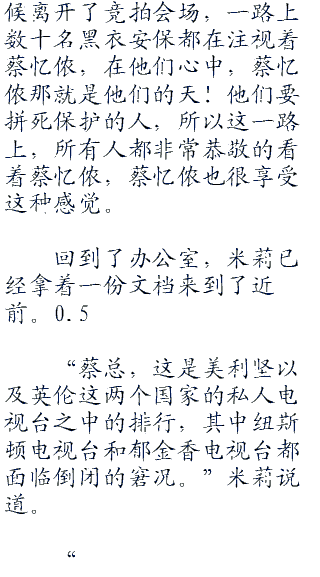 候离开了竞拍会场，一路上
数十名黑衣安保都在注视着
蔡忆侬，在他们心中，蔡忆
侬那就是他们的天！他们要
拼死保护的人，所以这一路
上，所有人都非常恭敬的看
着蔡忆侬，蔡忆侬也很享受
这种感觉。
回到了办公室，米莉已
经拿着一份文档来到了近
前。0.5
“蔡总，这是美利坚以
及英伦这两个国家的私人电
视台之中的排行，其中纽斯
顿电视台和郁金香电视台都
面临倒闭的窘况。”米莉说
道。
“